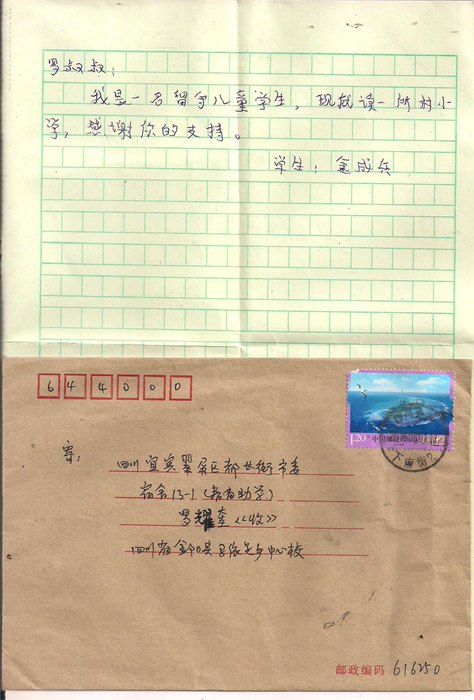 罗叔叔：
我是一名留守儿童学生，现就读一所村小
学，感谢你的支持。
学生：金成兵
644000
1.20
中国邮政
下南街2
寄：
四川宜宾翠屏区都长街市委
宿舍13-1（若有助学）
罗耀奎《收》
四川省金阳县
乡中心校
邮政编码 616250